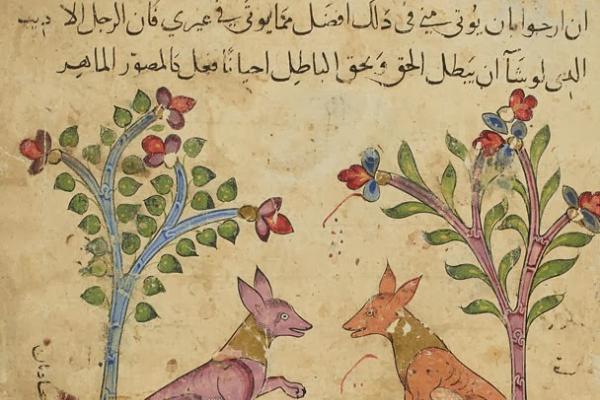 ان ارجوا بان يوتى مني فى ذلك افضل مما يوتى فى غيرى فان الرجل الاديب
الذى لو شآ ان يبطل الحق و يحق الباطل احيانا فعل كالمصور الماهر